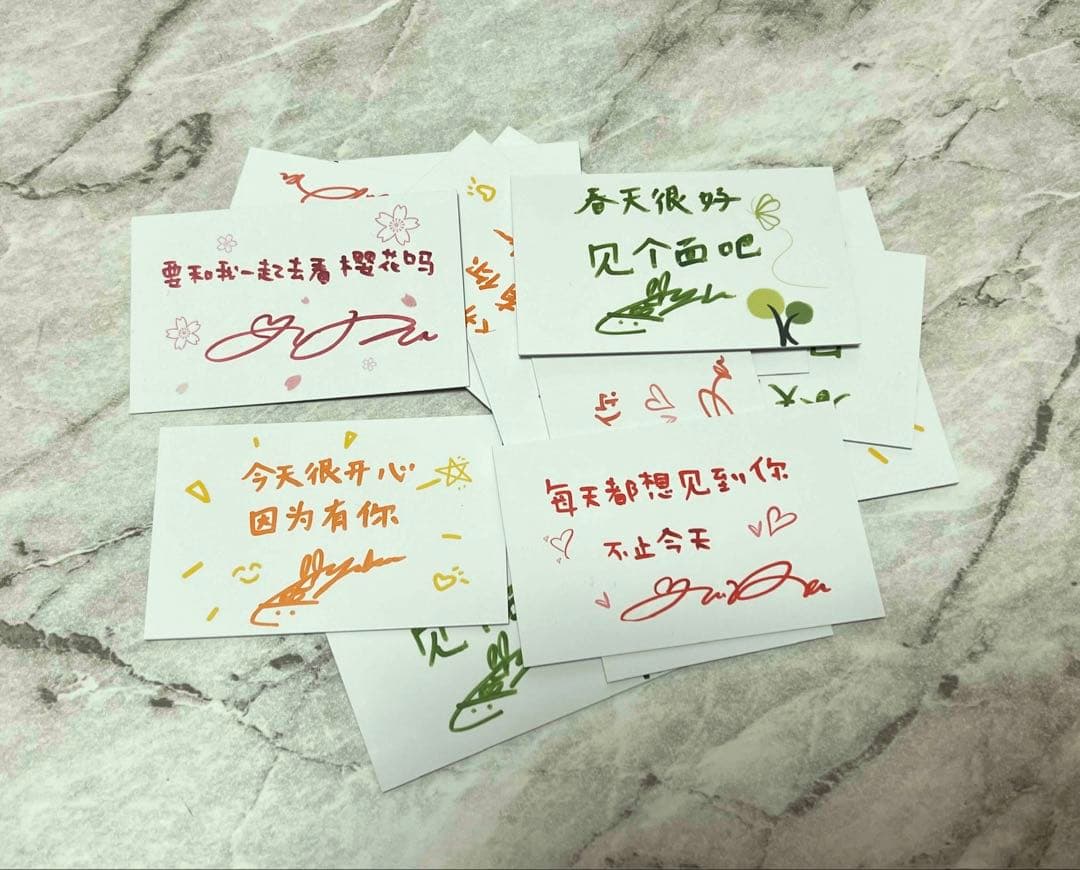 要和我一起去看樱花吗
春天很好
见个面吧
今天很开心
因为有你
每天都想见到你
不止今天
见